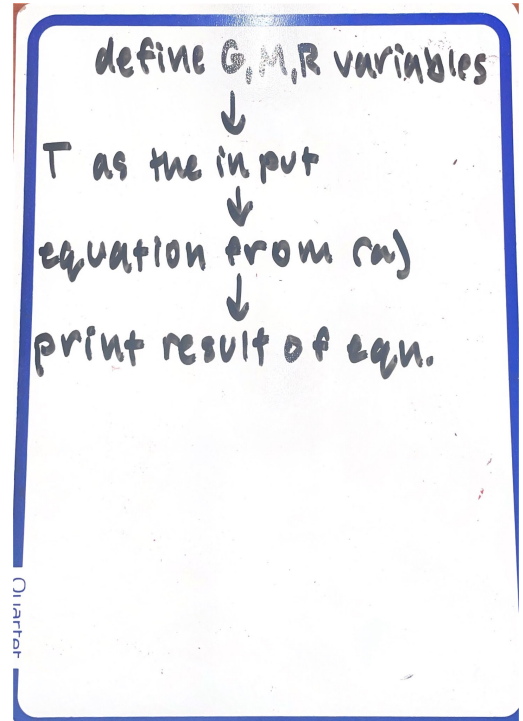 define G, M, R variables
↓
T as the input
↓
equation from (a)
↓
print result of eqn.
Quartet